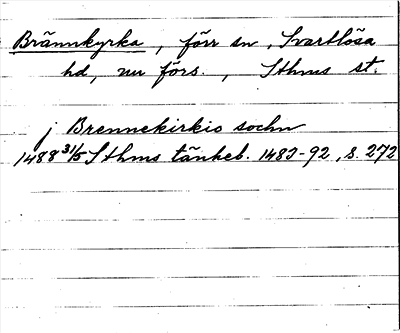 Brännkyrka, förr sn, Svartlösa
hd, nu förs., Sthms st.
j Brennekirkio sochn
1488 31/5 Sthms tänkeb. 1483-92, s. 272